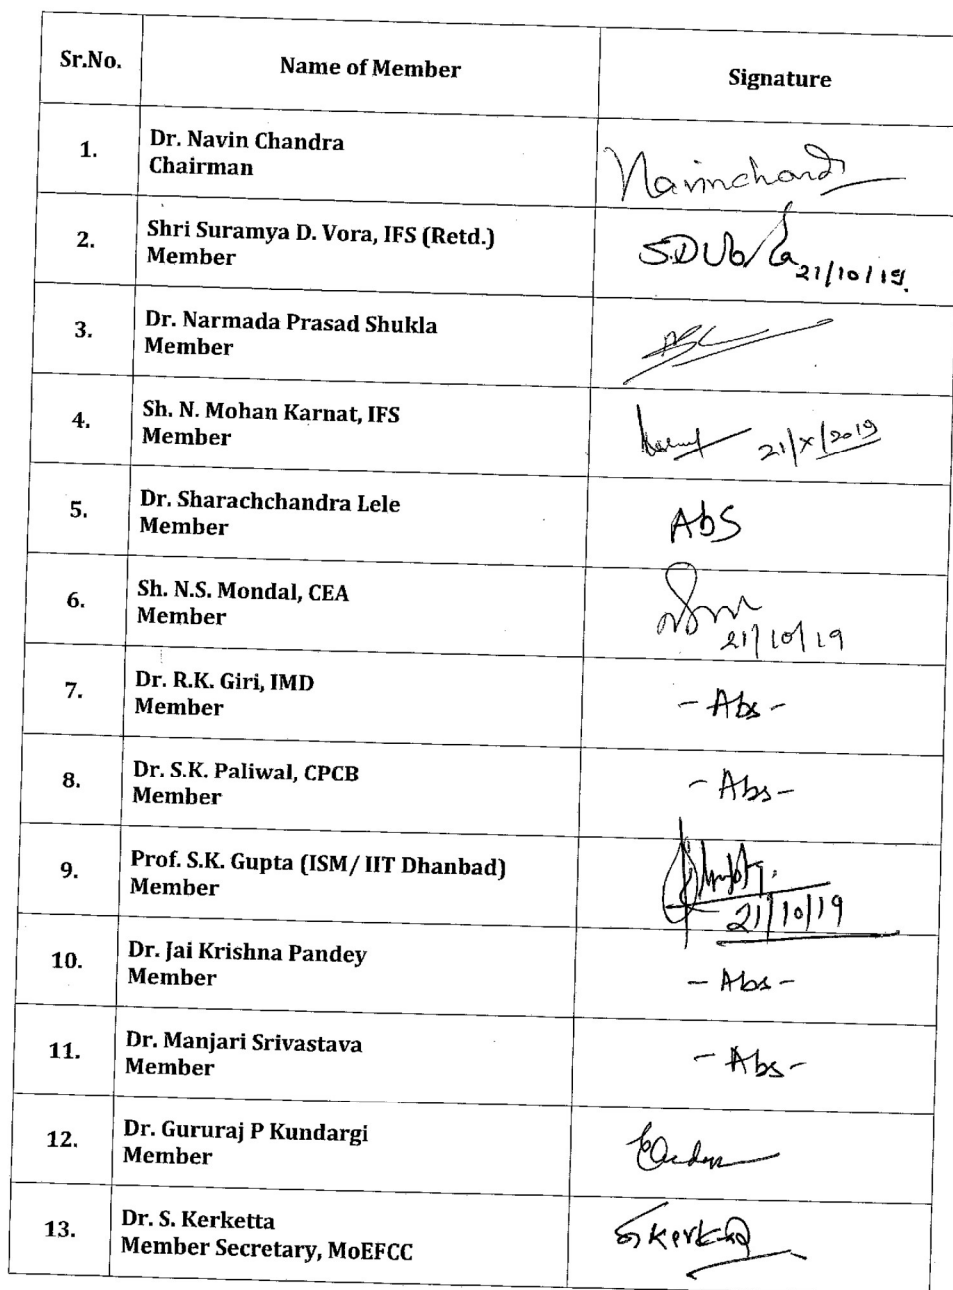 Sr.No. Name of Member Signature
1. Dr. Navin Chandra
Chairman
Navinchandr
2. Shri Suramya D. Vora, IFS (Retd.)
Member
S.D Vora 21/10/19.
3. Dr. Narmada Prasad Shukla
Member
4. Sh. N. Mohan Karnat, IFS
Member
21/X/2019
5. Dr. Sharachchandra Lele
Member
AbS
6. Sh. N.S. Mondal, CEA
Member
21/10/19
7. Dr. R.K. Giri, IMD
Member
- Abs -
8. Dr. S.K. Paliwal, CPCB
Member
- Abs -
9. Prof. S.K. Gupta (ISM/ IIT Dhanbad)
Member
21/10/19
10. Dr. Jai Krishna Pandey
Member
- Abs -
11. Dr. Manjari Srivastava
Member
- Abs -
12. Dr. Gururaj P Kundargi
Member
13. Dr. S. Kerketta
Member Secretary, MoEFCC
SKerketta